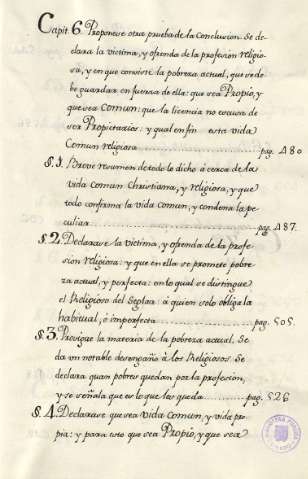 Capit 6. Proponese otra prueba de la Conclusion. Se de-
clara la victima, y ofrenda de la profesion religio-
sa, y en que consiste la pobreza actual, que se de-
be guardar en fuerza de ella: que sea Propio, y
que sea Comun: que la licencia no escusa de
ser Propietarios: y qual en fin esta vida
Comun religiosa pag. 480
§. 1. Breve resumen de todo lo dicho á cerca de la
vida comun Christiana, y religiosa, y que
todo confirma la vida Comun, y condena la pe-
culiar pag. 487.
§. 2. Declarase la victima, y ofrenda de la profe-
sion religiosa: y que en ella se promete pobre-
za actual, y perfecta: en lo qual se distingue
el Religioso del Seglar: a quien solo obliga la
habitual, ó imperfecta pag. 505.
§. 3. Prosigue la materia de la pobreza actual. Se
da un notable desengaño á los Religiosos. Se
declara quan pobres quedan por la profesion,
y se señala que es lo que les queda pag. 526
§. 4. Declarase que sea vida Comun, y vida pro-
pia: y para esto que sea Propio, y que sea